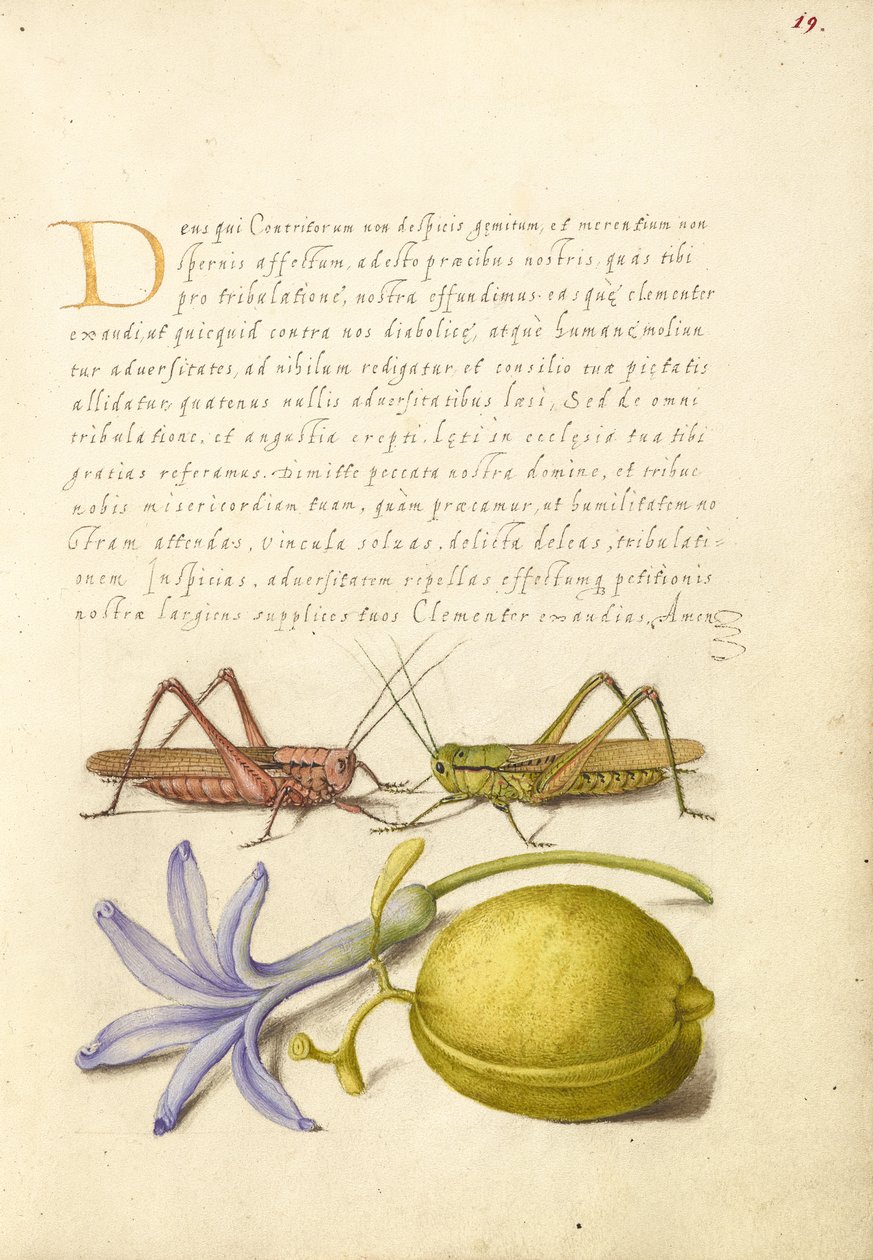 19.
Deus qui Contritorum non despicis gęmitum, et merentium non
spernis affectum, adesto præcibus nostris, quas tibi
pro tribulatione, nostra effundimus. easquè clementer
exaudi, ut quicquid contra nos diabolicę, atquè humanę moliun
tur aduersitates, ad nihilum redigatur et consilio tuæ piętatis
allidatur, quatenus nullis aduersitatibus læsi, Sed de omni
tribulatione, et angustia erepti, lęti in ecclęsia tua tibi
gratias referamus. Dimitte peccata nostra domine, et tribue
nobis misericordiam tuam, quàm præcamur, ut humilitatem no
stram attendas, vincula soluas, delicta deleas, tribulati=
onem Inspicias, aduersitatem repellas effectumq petitionis
nostræ largiens supplices tuos Clementer exaudias, Amen